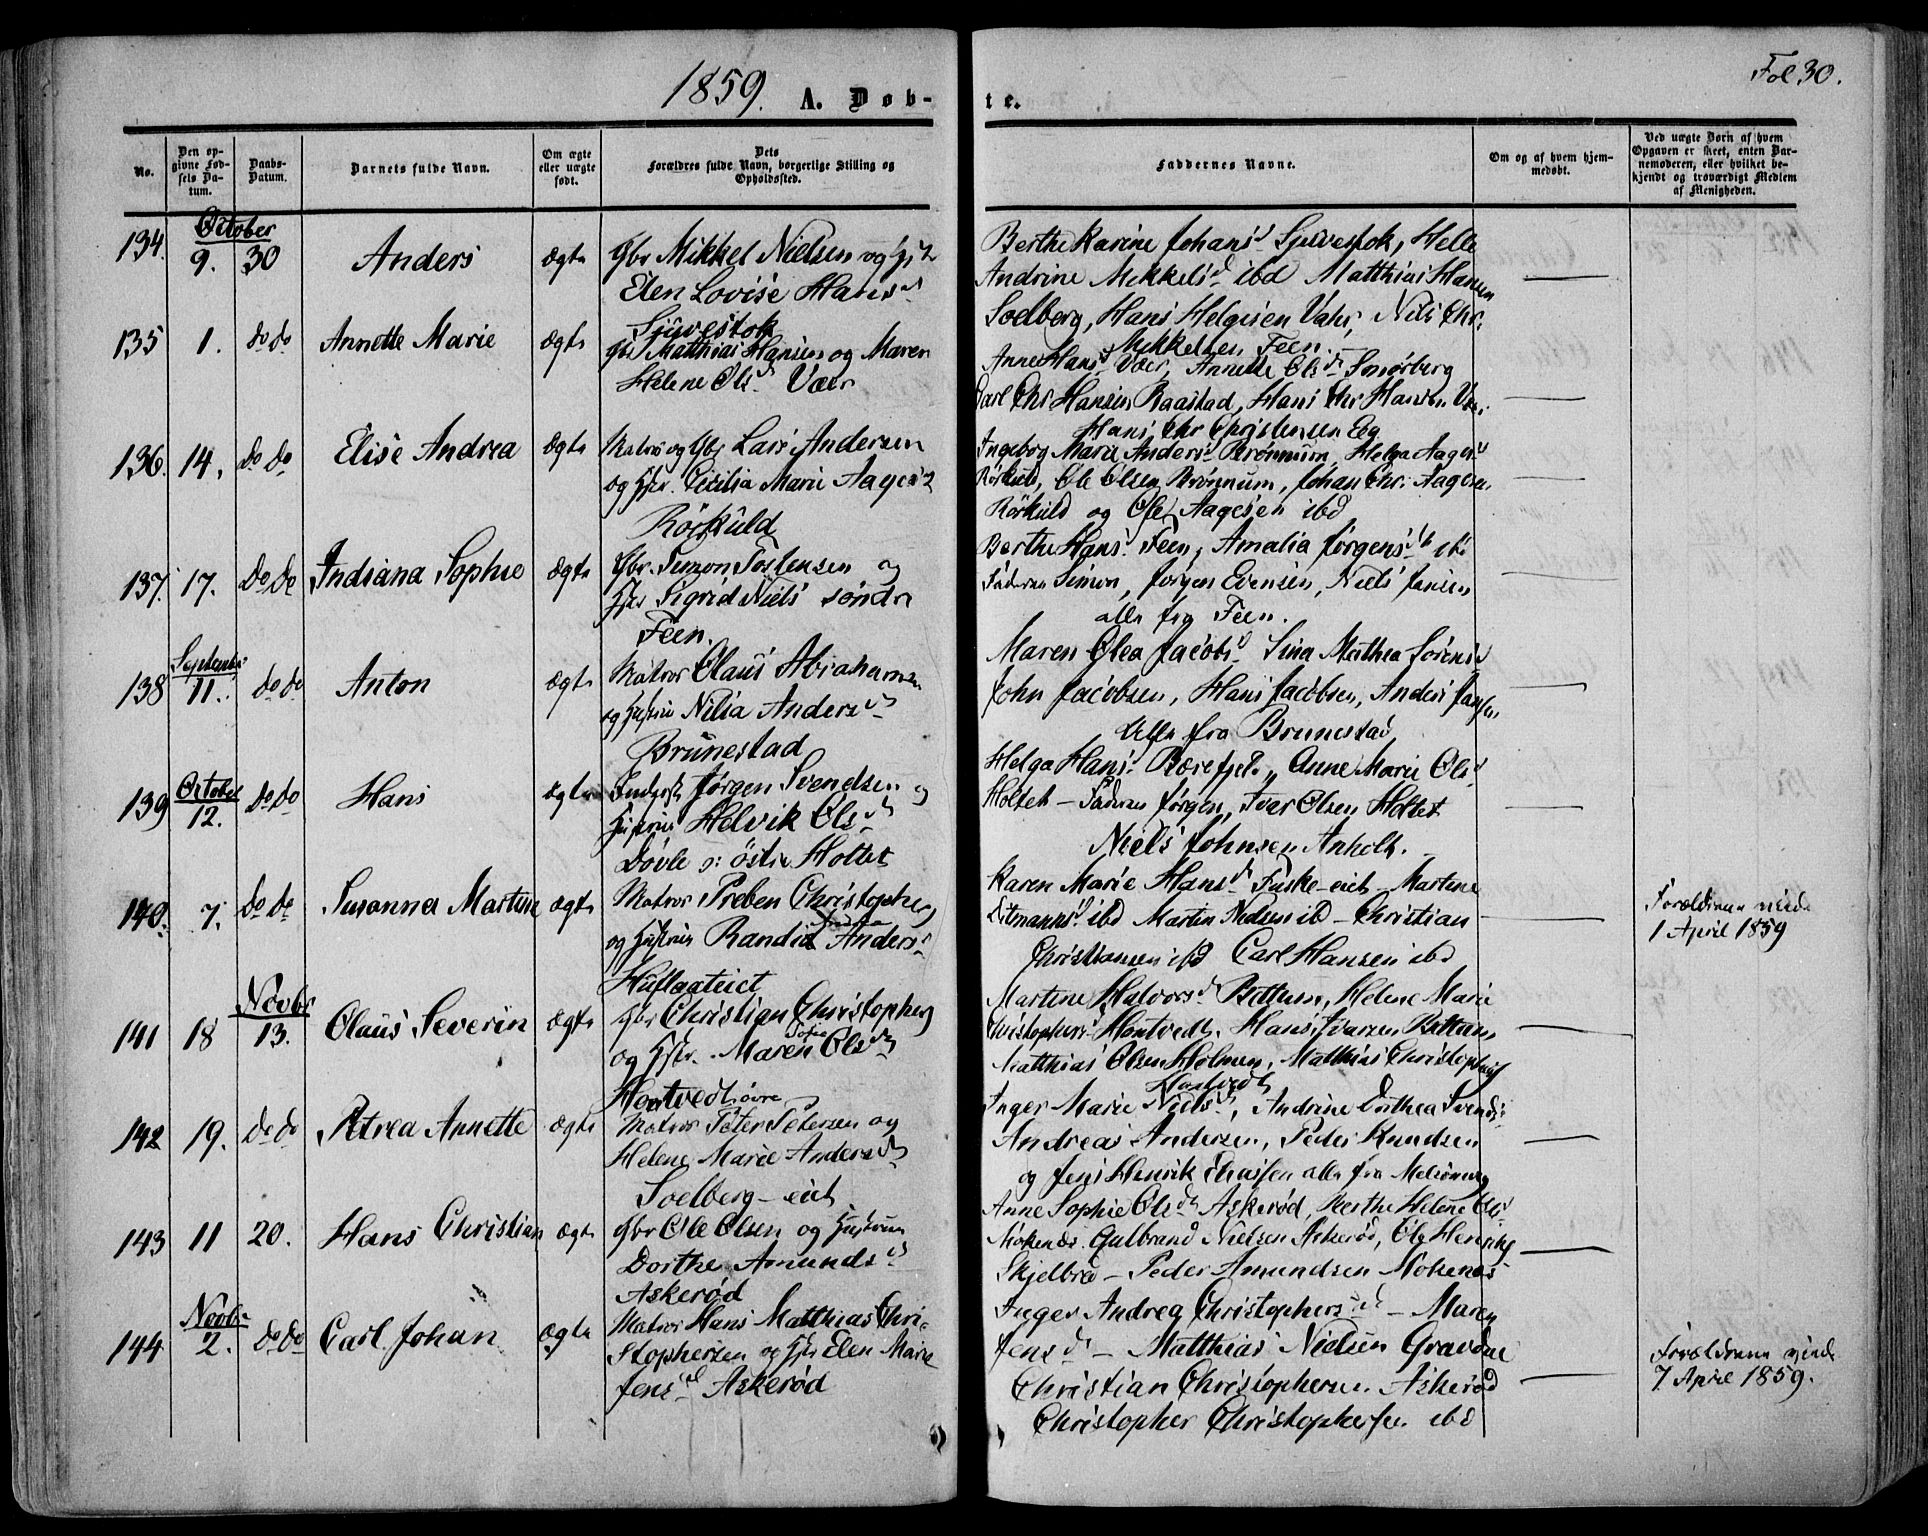 1859. A. Døb-
No.
Den op-
givne Fød-
sels Da-
tum.
Daabs-
Datum.
Barnets fulde Navn.
Om ægte
eller uægte
født.
Dets
Forældres fulde Navn, borgerlige Stilling og
Opholdssted.
134 October 9. 30 Anders ægte Gbr Mikkel Nielsen og
Elen Lovise Hansd
135 1. do do Annette Marie ægte Gbr Matthias Hansen og Maren
Helene Olsd Vær
136. 14. do do Elise Andrea ægte Matros og Gbr Lars Andersen
og Cecilia Marie Aagesd
Rörkuld
137. 17. do do Indiana Sophie ægte Gbr. Simon Tostensen og
Sigrid Niels søndre
Feen.
138 September 11. do do Anton ægte Matros Olaus Abrahamsen
og Hustru Nilia Andersd
Brunestad
139 October 12. do do Hans ægte Jørgen Svendsen og
Hustru Helvik Olsd
Døvle o: østre Holtet
140. 7. do do Susanna Martine ægte Matros Preben Christophers
og Hustru Randia Andersd
141 18 Novbr 13. Olaus Severin ægte Gbr Christian Christophers
og Maren Sofie Olsd
Hortvedt øvre
142 19. do do Petrea Annette ægte Matros Peter Petersen og
Helene Marie Andersd
Soelberg-eiet
143 11 20. Hans Christian ægte Gbr Ole Olsen og Hustru
Dorthe Amundsd
Askerød
144 Novbr 2. do do Carl Johan ægte Matros Hans Matthias Chri-
stophersen og Elen Marie
Jensd Askerød
Fol 30.
te.
Faddernes Navne.
Om og af hvem hjem-
medøbt.
Ved uægte Børn af hvem
Opgaven er skeet, enten Bar-
nemoderen, eller hvilket be-
kjendt og troværdigt Medlem
af Menigheden.
Berthe Karine Johansd Helle
Andrine Mikkelsd ibd Matthias Hansen
Soelberg, Hans Helgesen Vahr, Niels Chr.
Mikkelsen Feen
Anne Hansd Vær, Annette Olsd Smörberg
Carl Chr Hansen Raastad, Hans Chr Hansen Vær
Hans Chr Christensen Eeg
Ingeborg Marie Andersd Brönnum, Helga Aagesd
Rörkuld, Ole Olsen Brönnum, Johan Chr. Aagesen
Rörkuld og Ole Aagesen ibd
Berthe Hansd Feen, Amalia Jörgensd ibd
Faderen Simon, Jørgen Evensen, Niels Jansen
alle fra Feen.
Maren Olea Jacobsd Sina Mathea Sörensd
John Jacobsen, Hans Jacobsen, Anders Jansen
Alle fra Brunestad
Helga Hansd Anne Marie Olsd
Holtet - Faderen Jørgen, Ivar Olsen Holtet
Niels Johnsen Anholt.
Karen Marie Hansd Martine
ibd Martin Nielsen ibd - Christian
Christiansen ibd Carl Hansen ibd
Forældrene viede
1 April 1859
Martine Halvorsd Bettum, Helene Marie
Christophersd Hortvedt. Hans Ivarsen Bettum,
Matthias Olsen Holmen, Matthias Christophers
Hortvedt
Inger Marie Nielsd, Andrine Dorthea Svends
Andreas Andersen, Peder Knudsen
og Jens Henrik alle fra
Anne Sophie Olsd Askerød, Berthe Helene Olsd
Gulbrand Nielsen Askerød, Ole
Skjelbred - Peder Amundsen
Inger Andrea Christophersd - Maren
Jensd - Matthias Nielsen Gravdal
Christian Christophersen. Askerød
Christopher Christophersen. ibd
Forældrene viede
7 April 1859.